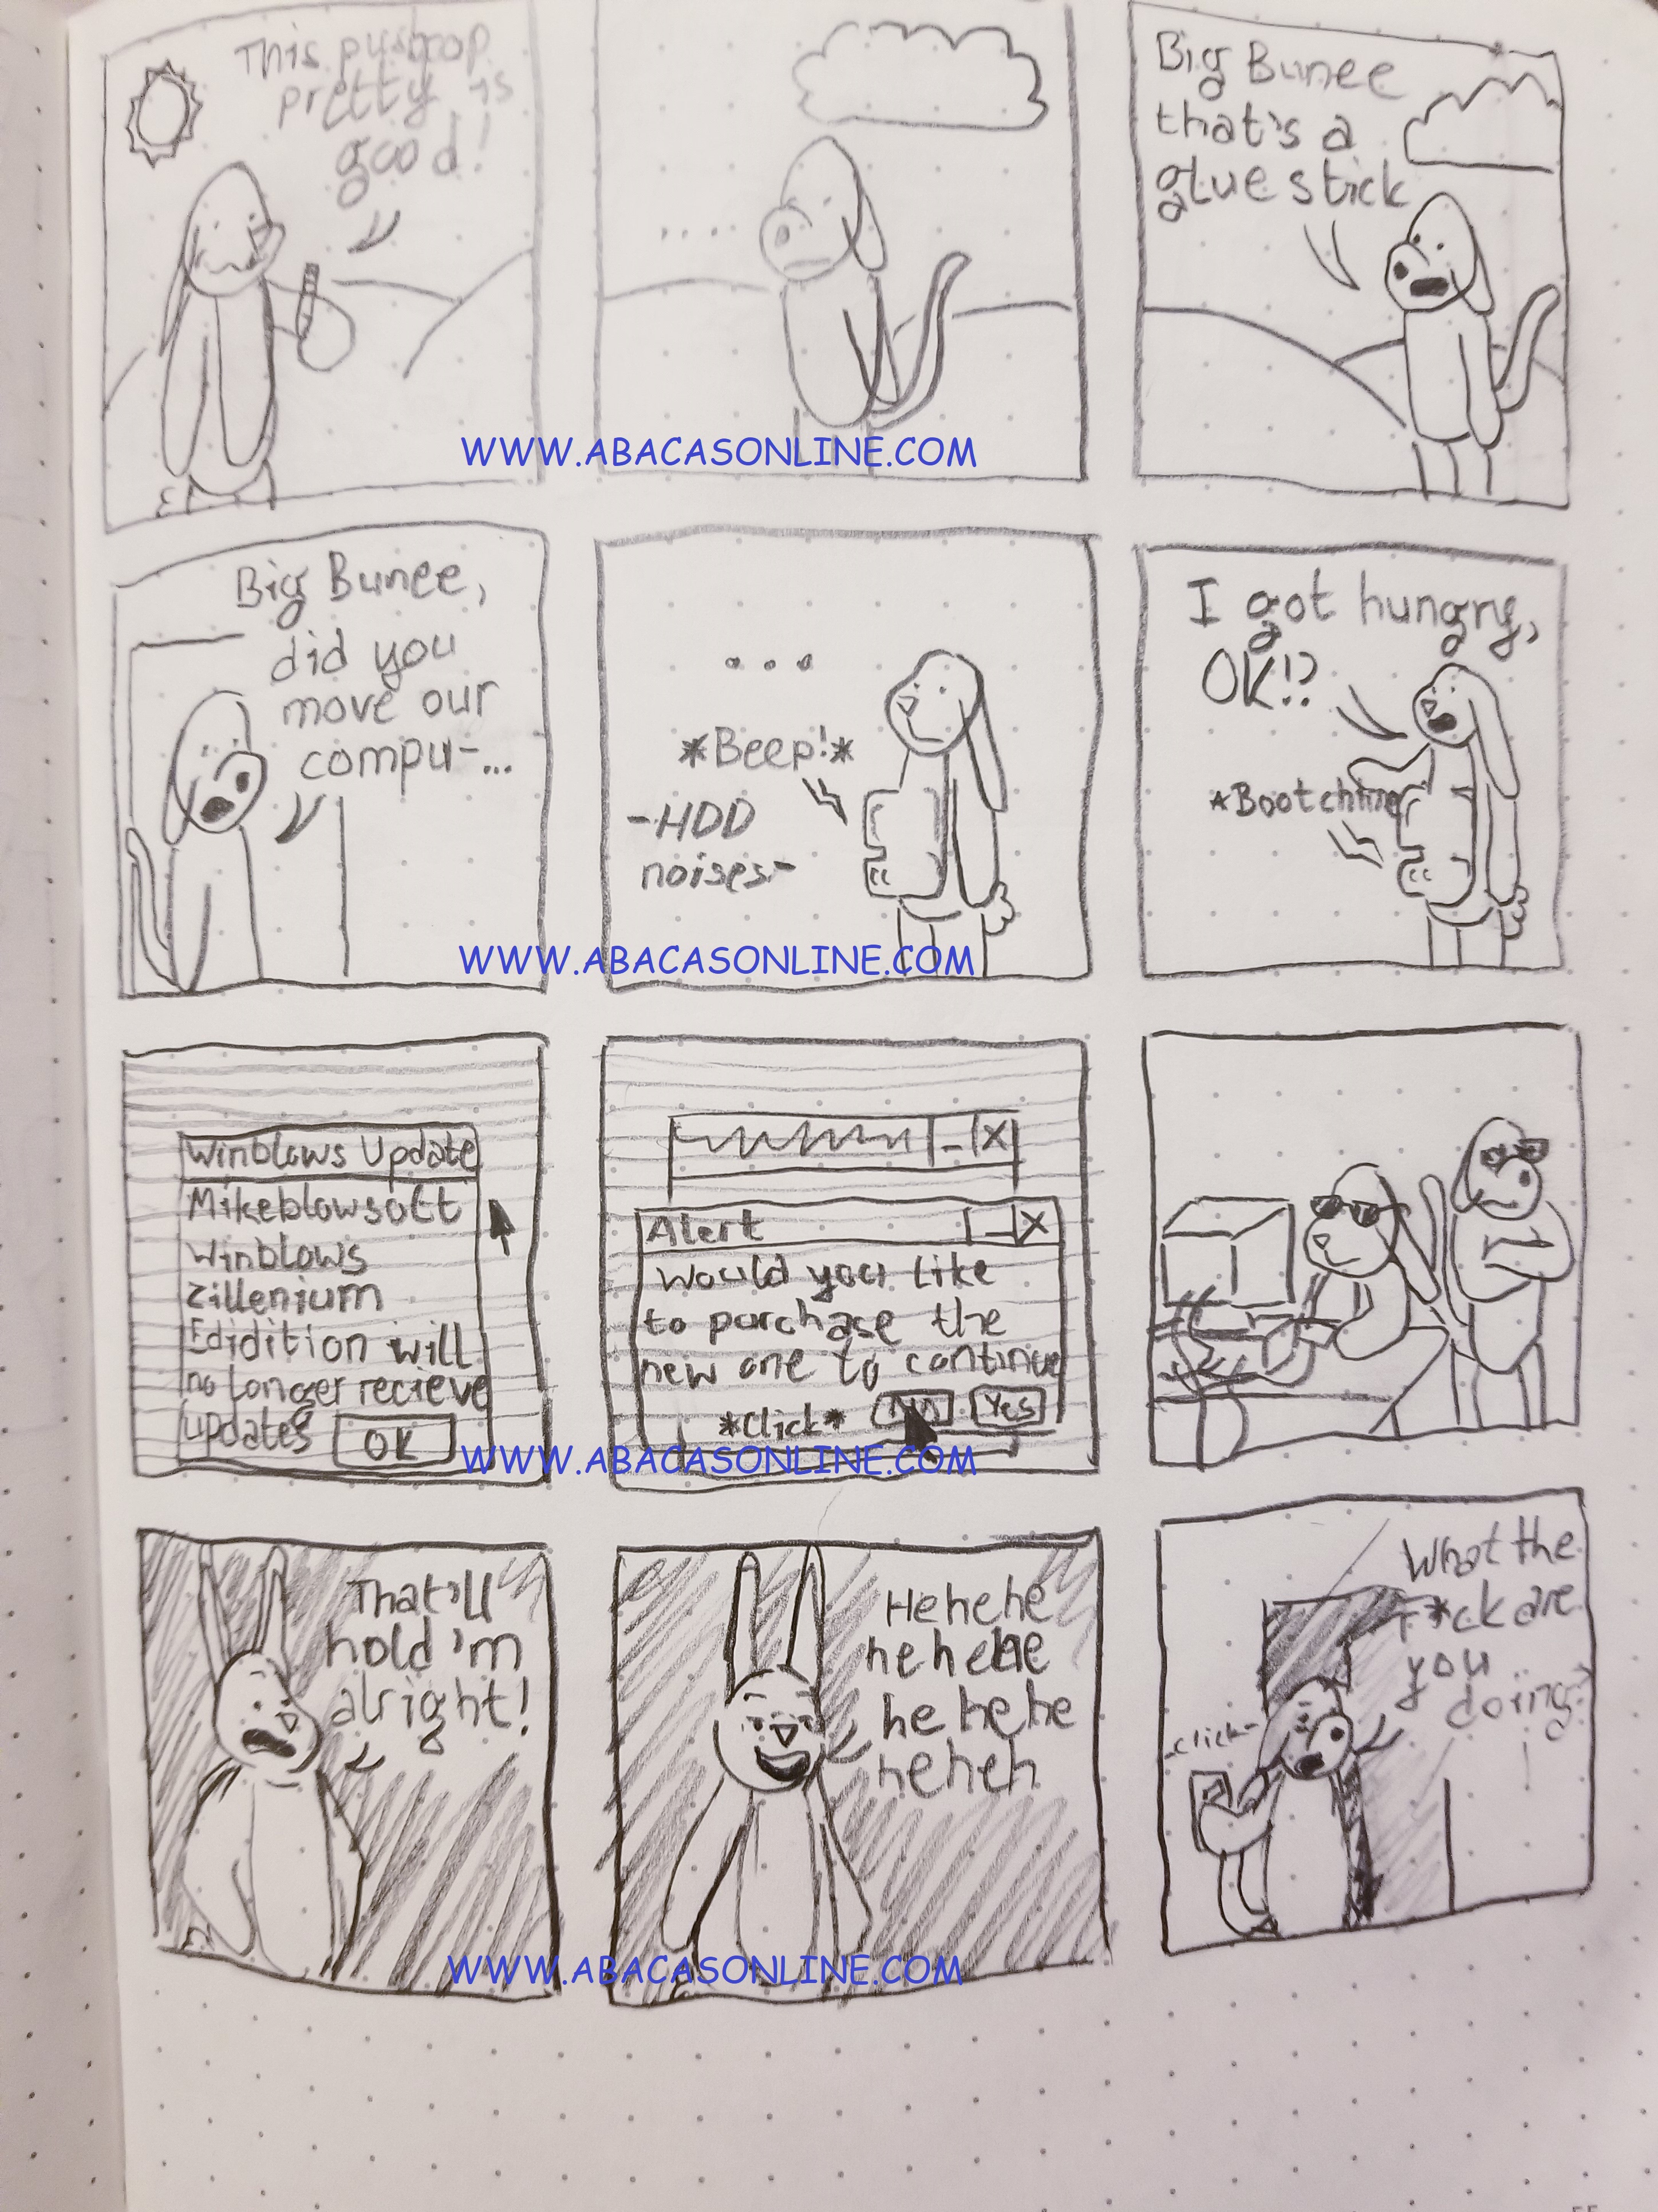 This pushpop
pretty is
good!
....
Big Bunee
that's a
glue stick
WWW.ABACASONLINE.COM
Big Bunee,
did you
move our
compu-...
...
*Beep!*
-HDD
noises-
I got hungry,
OK!?
*Bootchime
WWW.ABACASONLINE.COM
Winblows Update
Mikeblowsoft
Winblows
Zillenium
Edidition will
no longer recieve
updates
OK
_ X
Alert _ X
Would you like
to purchase the
new one to continue
*Click* No Yes
WWW.ABACASONLINE.COM
That'll
hold 'm
alright!
Hehehe
hehehe
hehehe
heheh
What the
F*ck are
you
doing?
-click-
WWW.ABACASONLINE.COM